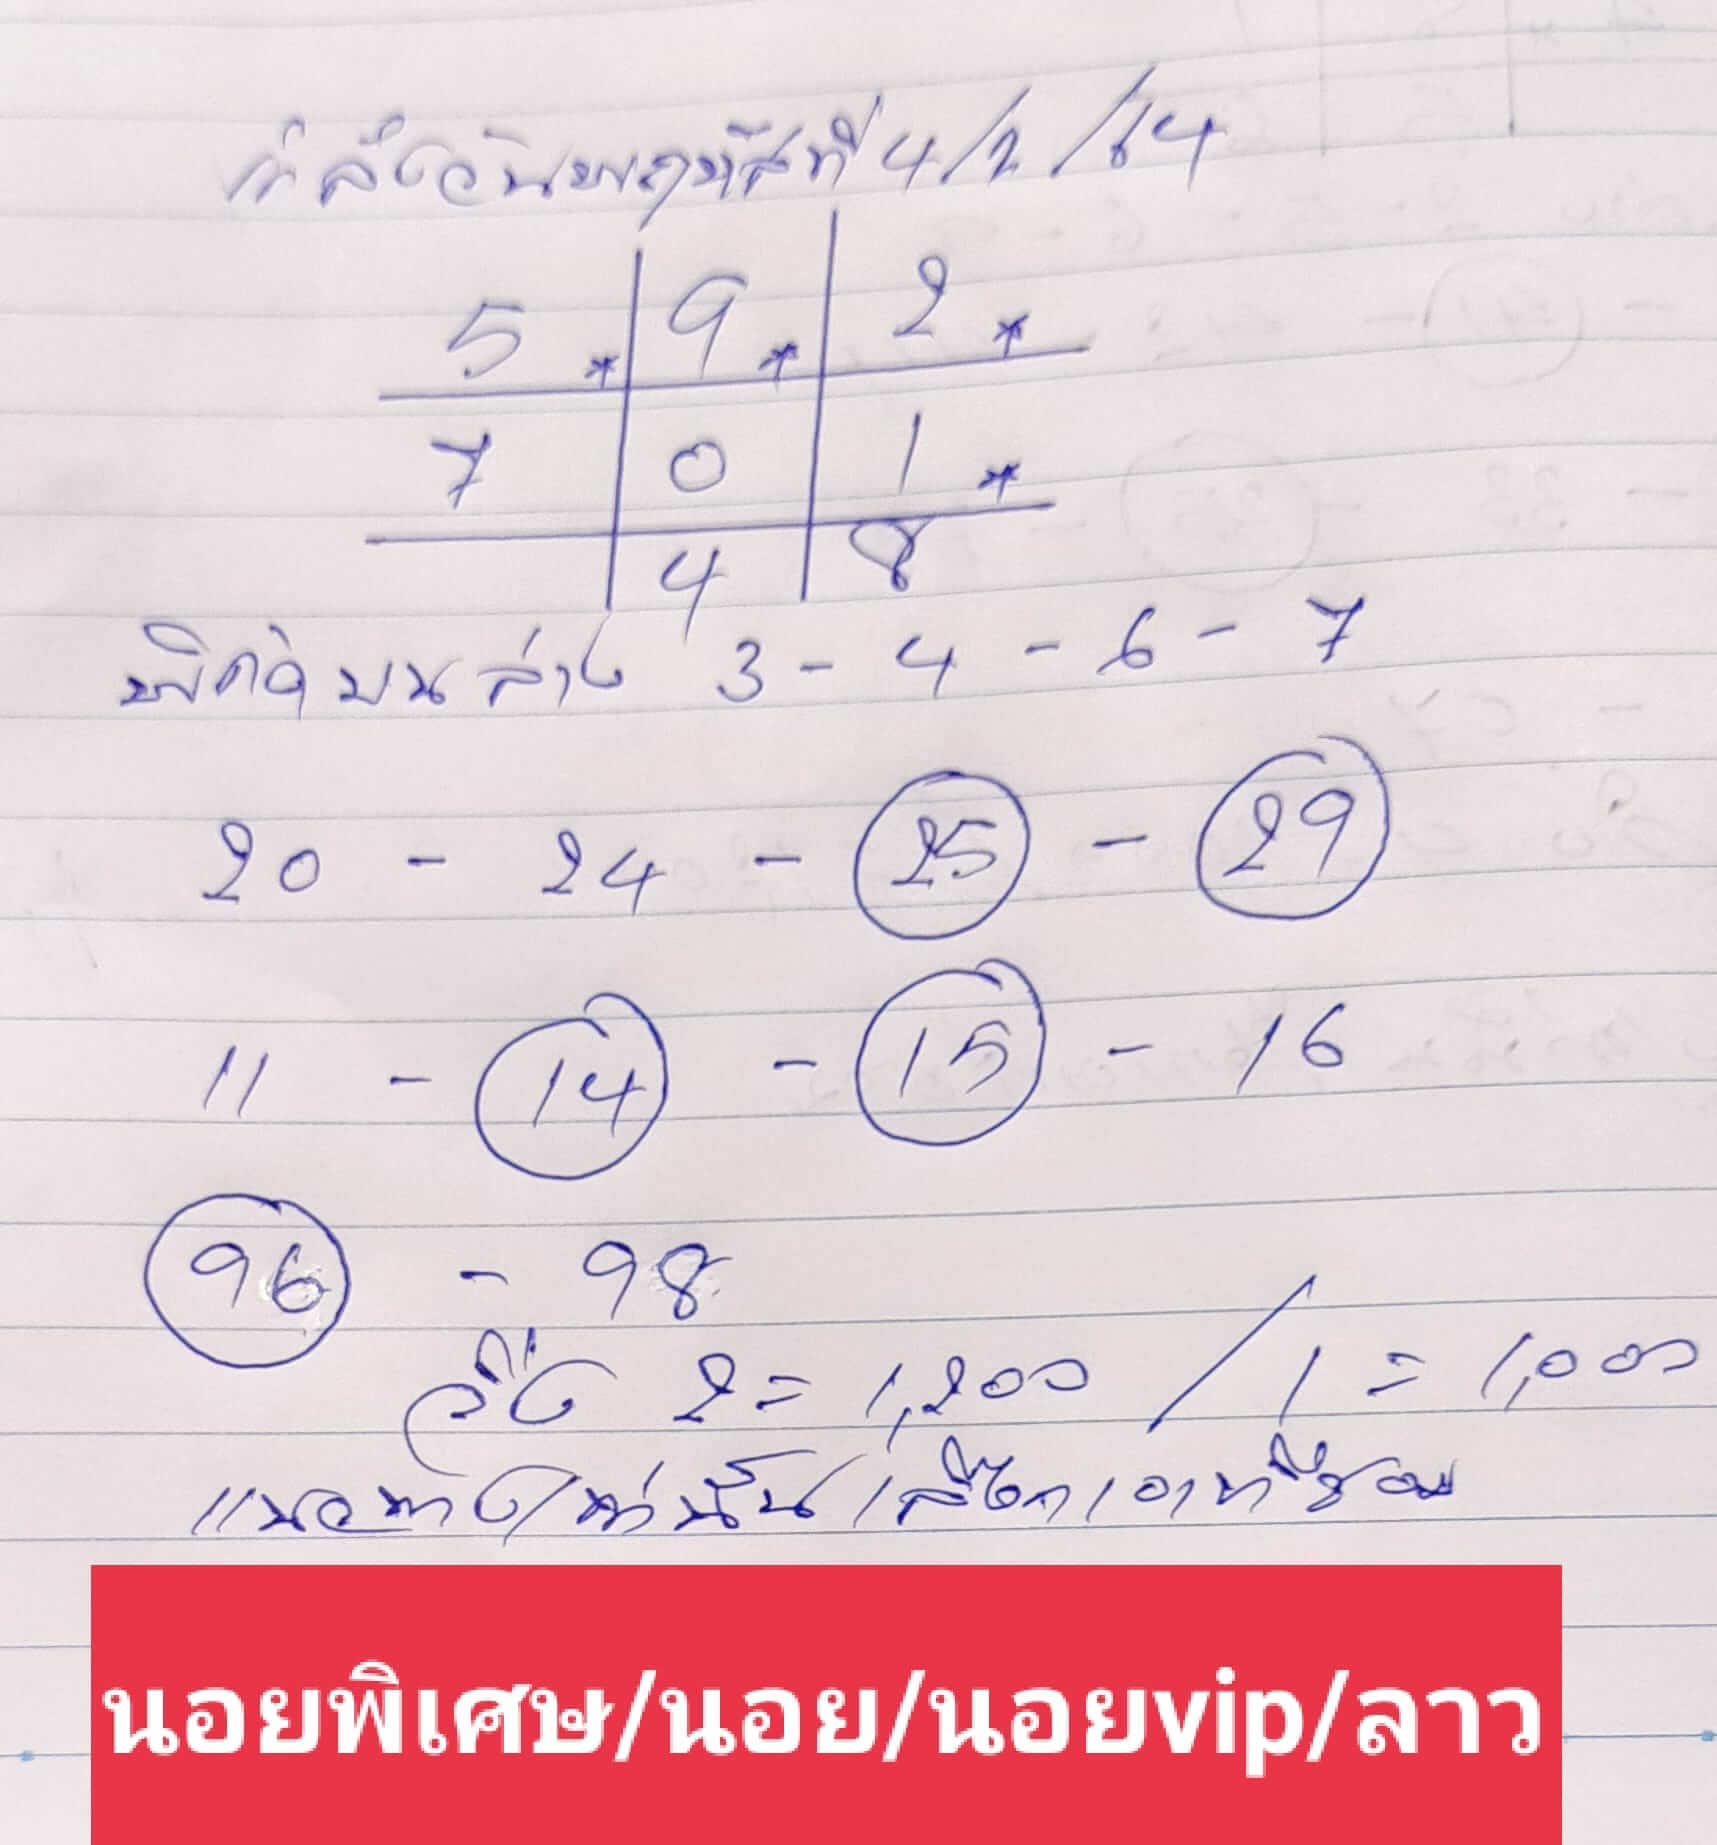 กำลังวันพฤหัสที่ 4/2/64
5 * 9 * 2 *
7 0 1 *
4 8
พิกัด บน ล่าง 3 - 4 - 6 - 7
20 - 24 - 25 - 29
11 - 14 - 15 - 16
96 - 98
วิ่ง 2 = 1,200 / 1 = 1,000
แนวทางเท่านั้นเลือกเอาที่ชอบ
นอยพิเศษ/นอย/นอยvip/ลาว